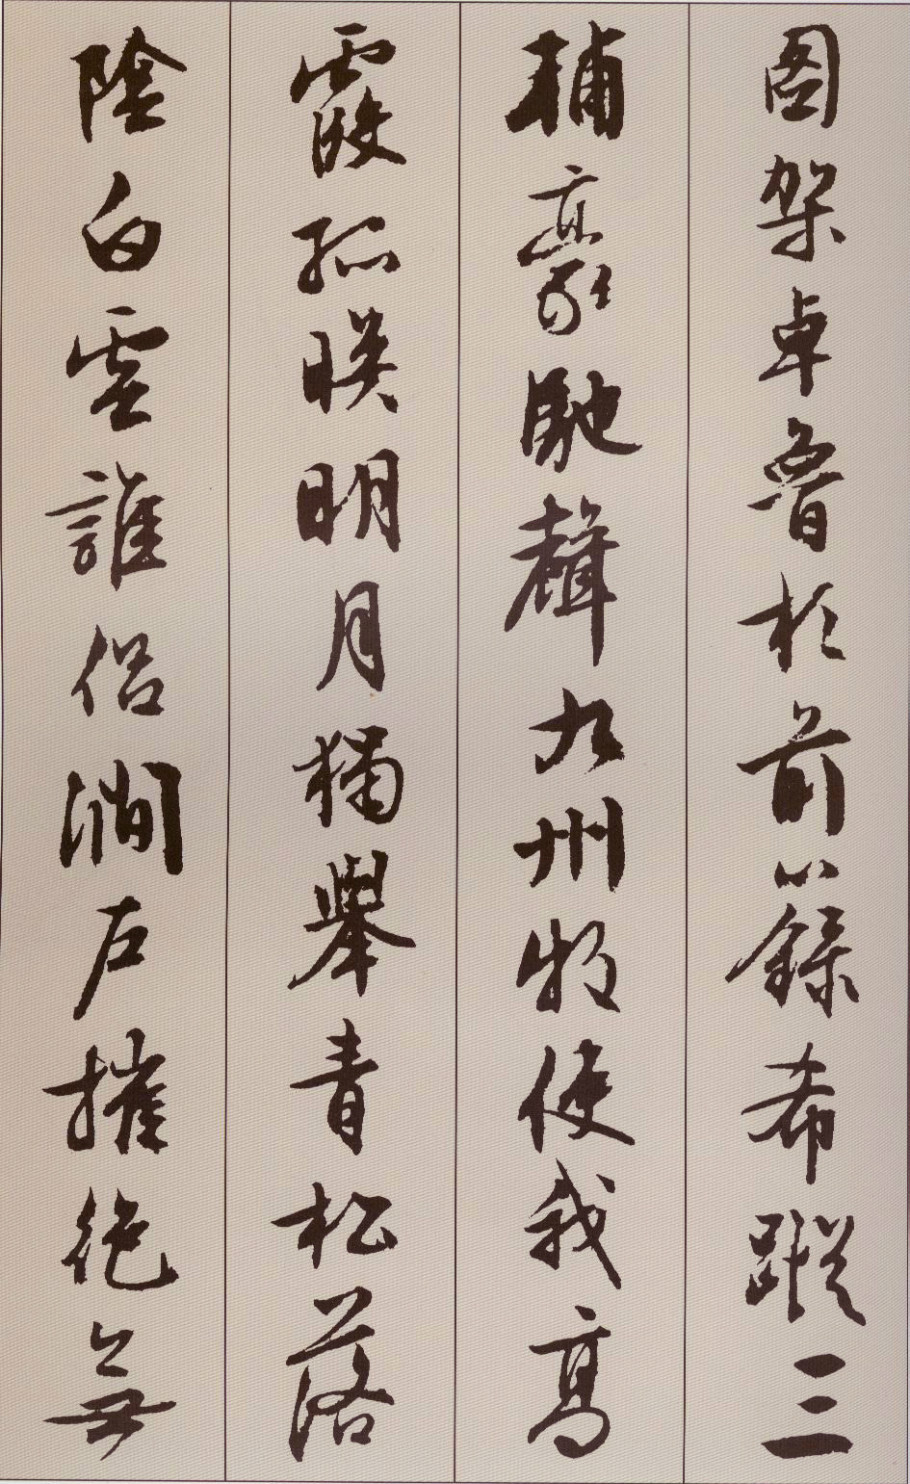 圖架卓魯於前籙希蹤三
輔豪馳聲九州牧使我高
霞孤暎明月獨舉青松落
陰白雲誰侶澗戶摧絕無